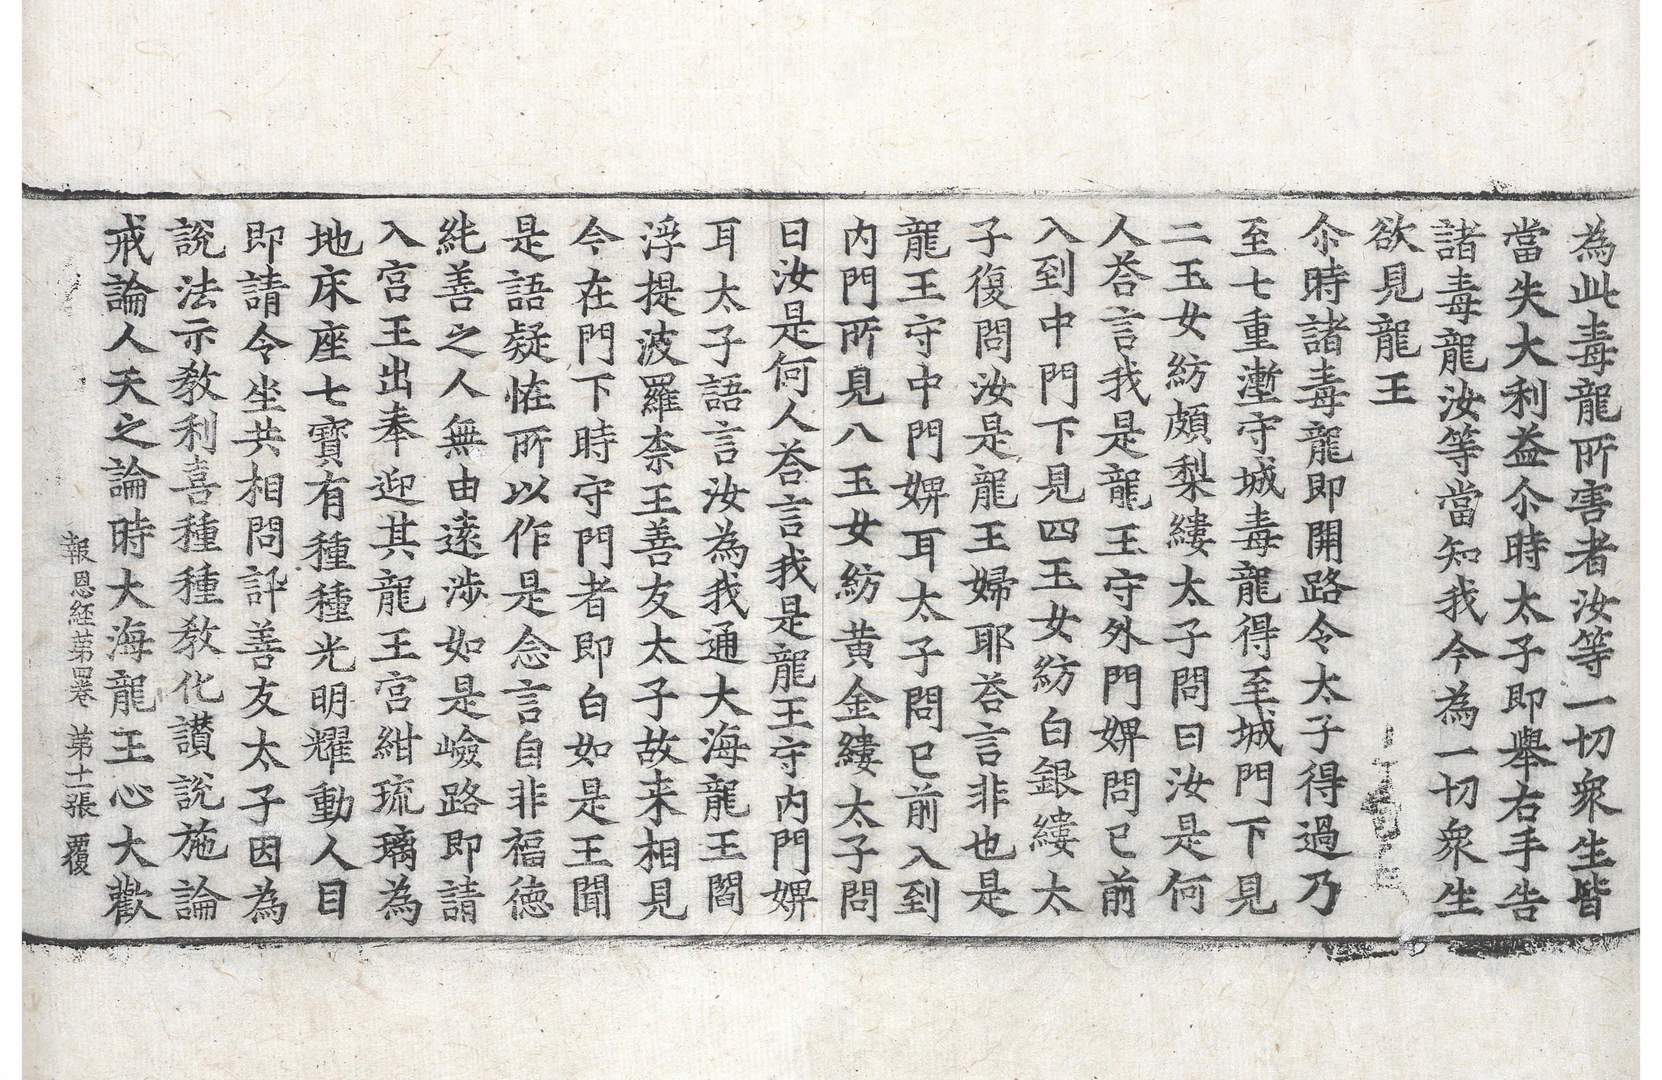 為此毒龍所害者汝等一切衆生皆
當失大利益尒時太子即舉右手告
諸毒龍汝等當知我今為一切衆生
欲見龍王
尒時諸毒龍即開路令太子得過乃
至七重壍守城毒龍得至城門下見
二玉女紡頗梨縷太子問曰汝是何
人荅言我是龍王守外門婢問已前
入到中門下見四玉女紡白銀縷太
子復問汝是龍王婦耶荅言非也是
龍王守中門婢耳太子問已前入到
内門所見八玉女紡黄金縷太子問
曰汝是何人荅言我是龍王守内門婢
耳太子語言汝為我通大海龍王閻
浮提波羅柰王善友太子故来相見
今在門下時守門者即白如是王聞
是語疑恠所以作是念言自非福德
純善之人無由遠涉如是嶮路即請
入宮王出奉迎其龍王宮紺琉璃為
地床座七寶有種種光明耀動人目
即請令坐共相問訊善友太子因為
說法示教利喜種種教化讃說施論
戒論人天之論時大海龍王心大歡
報恩経苐四卷 苐十二張 覆